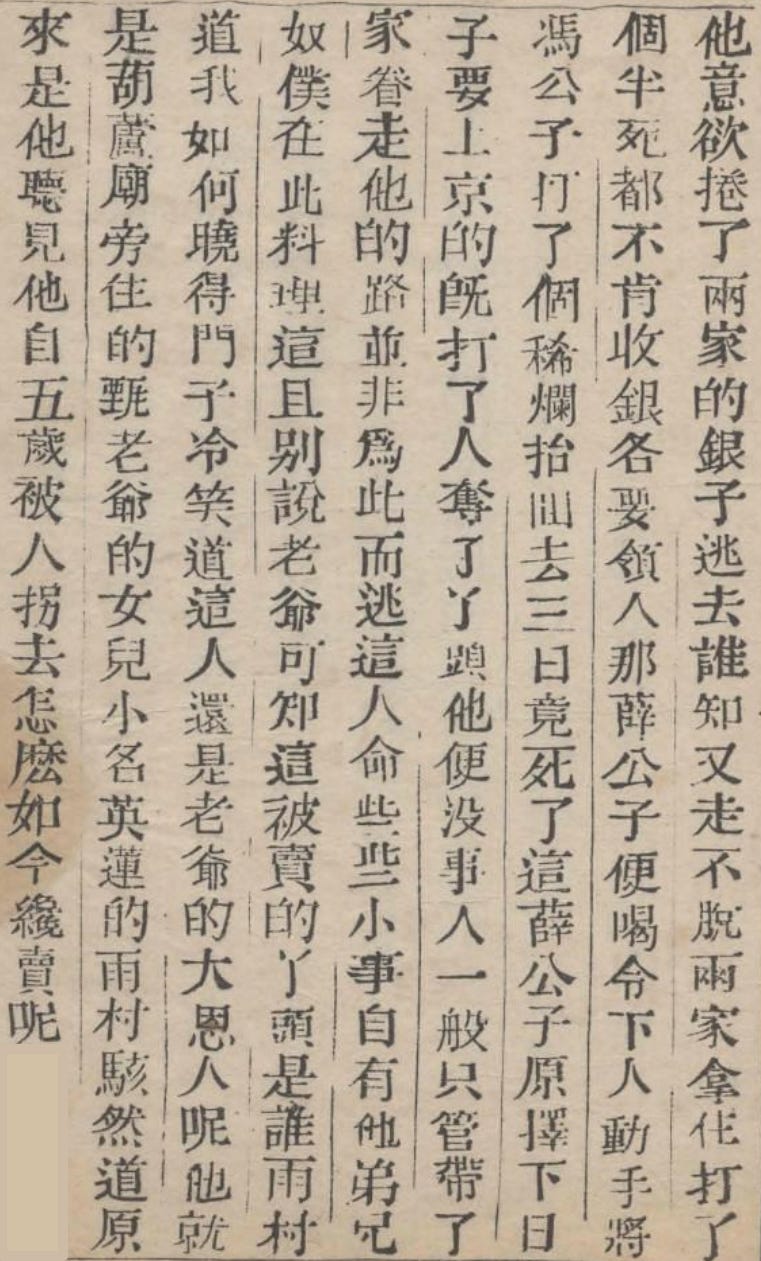 他意欲捲了兩家的銀子逃去誰知又走不脫兩家拿住打了
個半死都不肯收銀各要領人那薛公子便喝令下人動手將
馮公子打了個稀爛抬回去三日竟死了這薛公子原擇下日
子要上京的旣打了人奪了丫頭他便没事人一般只管帶了
家眷走他的路並非爲此而逃這人命些些小事自有他弟兄
奴僕在此料理這且别說老爺可知這被賣的丫頭是誰雨村
道我如何曉得門子冷笑道這人還是老爺的大恩人呢他就
是葫蘆廟旁住的甄老爺的女兒小名英蓮的雨村駭然道原
來是他聽見他自五歲被人拐去怎麽如今纔賣呢